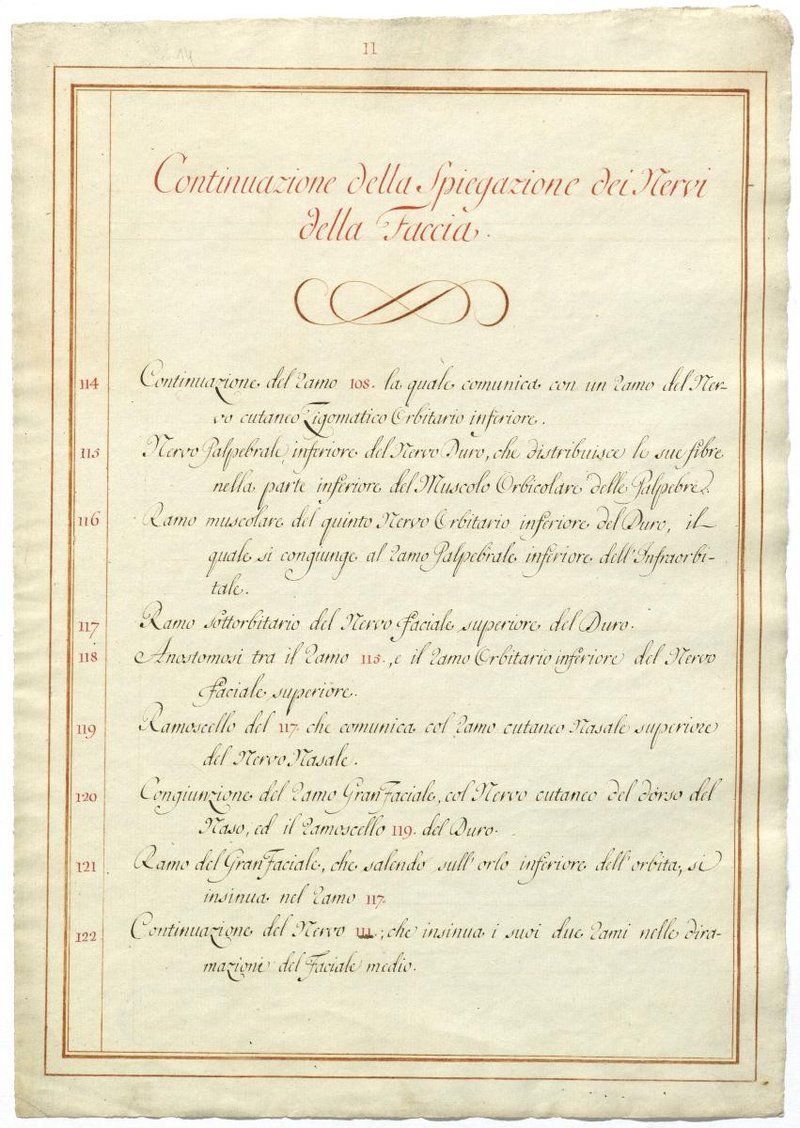 11
Continuazione della Spiegazione dei Nervi
della Faccia.
114 Continuazione del Ramo 108. la quale comunica con un Ramo del Ner-
vo cutaneo Zigomatico Orbitario inferiore.
115 Nervo Palpebrale inferiore del Nervo Duro, che distribuisce le sue fibre
nella parte inferiore del Muscolo Orbicolare delle Palpebre.
116 Ramo muscolare del quinto Nervo Orbitario inferiore del Duro, il
quale si congiunge al Ramo Palpebrale inferiore dell'Infraorbi-
tale.
117 Ramo sottorbitario del Nervo Faciale superiore del Duro.
118 Anostomosi tra il Ramo 115., e il Ramo Orbitario inferiore del Nervo
Faciale superiore.
119 Ramoscello del 117. che comunica col Ramo cutaneo Nasale superiore
del Nervo Nasale.
120 Congiunzione del Ramo Gran Faciale, col Nervo cutaneo del dorso del
Naso, ed il Ramoscello 119. del Duro.
121 Ramo del Gran Faciale, che salendo sull'orlo inferiore dell'orbita, si
insinua nel Ramo 117.
122 Continuazione del Nervo 111., che insinua i suoi due Rami nelle dira-
mazioni del Faciale medio.